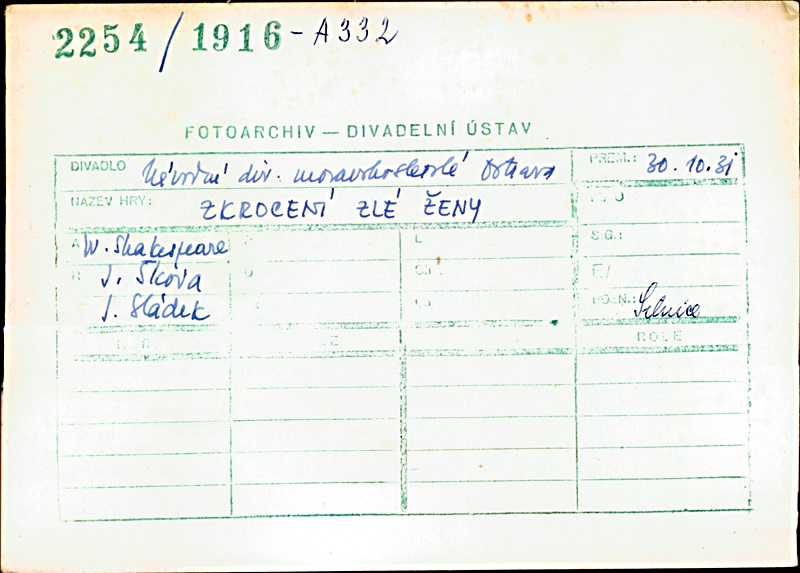 2254 / 1916 - A332
FOTOARCHIV — DIVADELNÍ ÚSTAV
DIVADLO Národní div. moravskoslezské Ostrava PREM.: 30.10.31
NÁZEV HRY: ZKROCENÍ ZLÉ ŽENY
A W. Shakespeare L S.G.:
R J. Škoda F./
J. Sládek POZN.: Selnice
ROLE